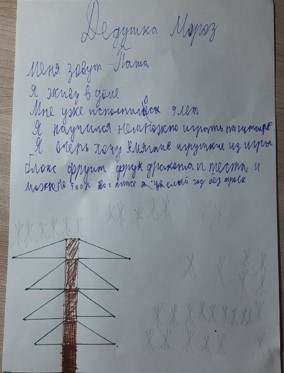 Дедушка Мороз
Меня зовут Паша
Я живу в доме
Мне уже исполнилось 9 лет
Я научился немножко играть на гитаре
Я очень хочу мягкие игрушки из игры
блокс фрутс фрукт дракона и теста и
можно целый год без